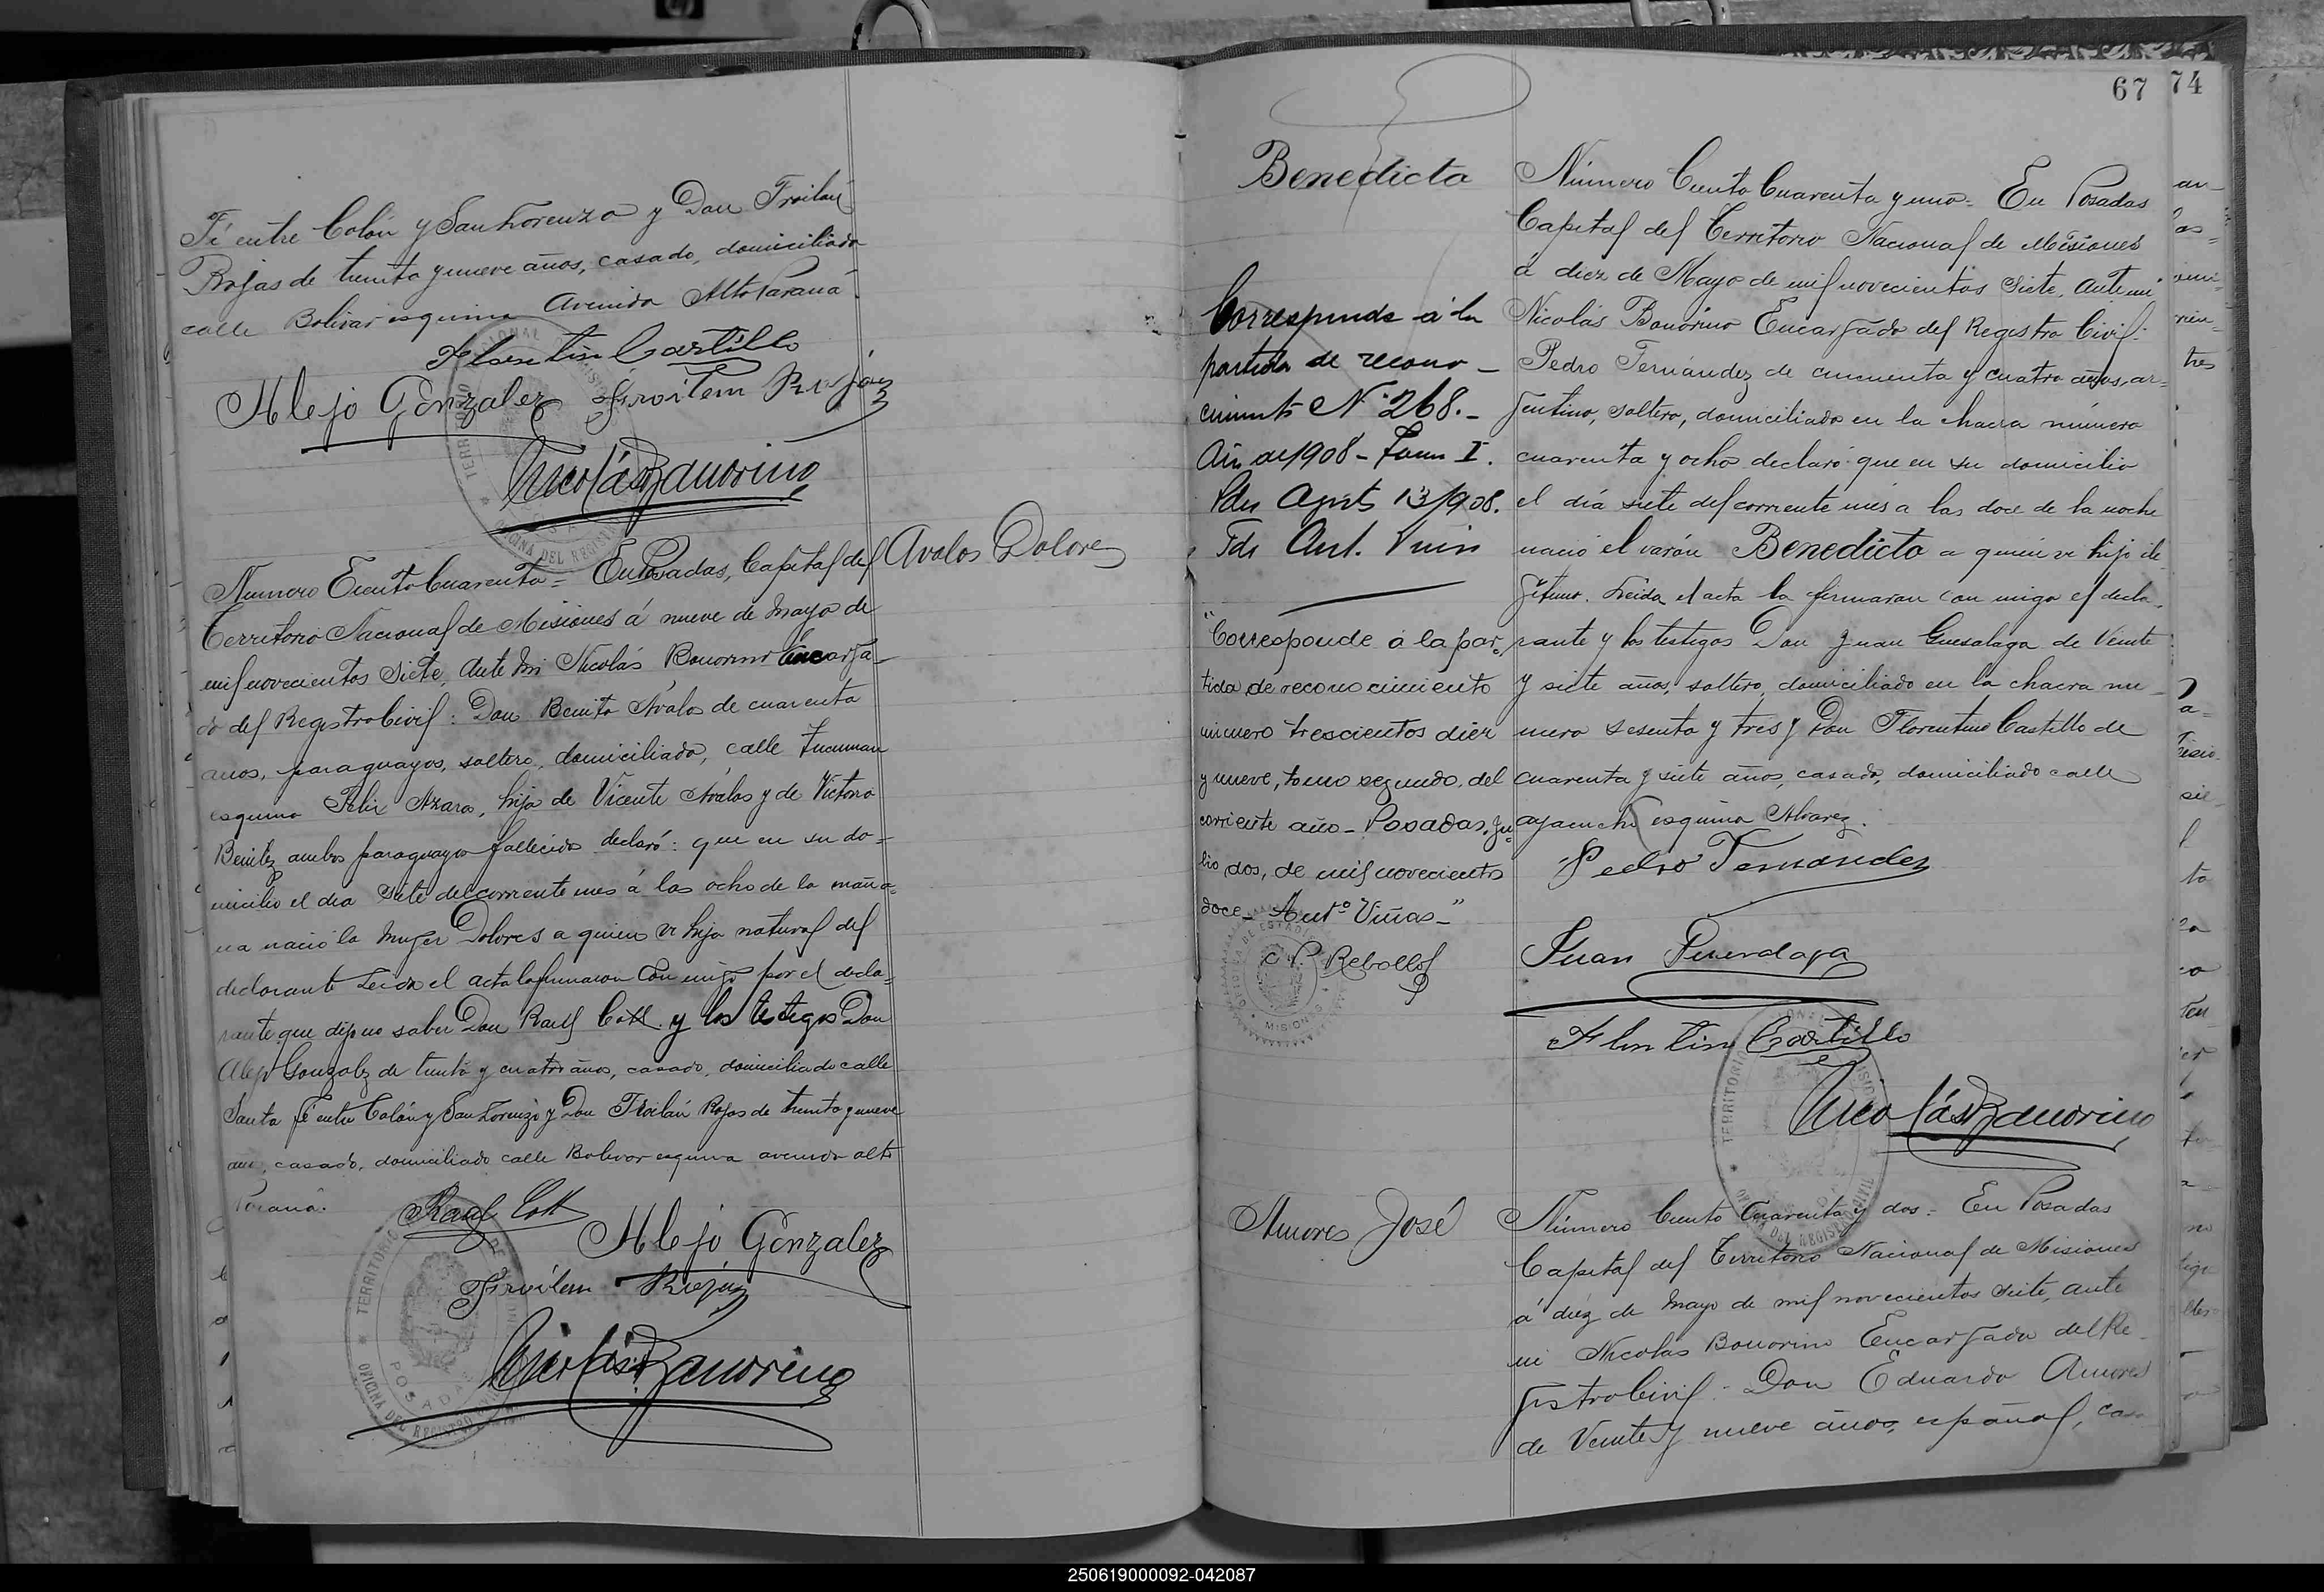 Fé entre Colón y San Lorenzo y Don Froilán
Rojas de treinta y nueve años, casado, domiciliado
calle Bolivar esquina Avenida Alto Paraná.
Florentin Castillo
Alejo Gonzalez Froilan Rojas
Nicolás Bonorino
Avalos Dolores
Número Ciento Cuarenta = En Posadas, Capital del
Territorio Nacional de Misiones á nueve de Mayo de
mil novecientos siete, ante mi Nicolás Bonorino Encarga-
do del Registro Civil: Don Benito Avalos de cuarenta
años, paraguayo, soltero, domiciliado, calle Tucuman
esquina Felix Azara, hijo de Vicente Avalos y de Victoria
Benitez ambos paraguayos fallecidos declaró: que en su do=
micilio el dia siete del corriente mes á las ocho de la maña=
na nació la muger Dolores a quien ve hija natural del
declarante Leida el acta la firmaron con migo por el decla=
rante que dijo no saber Don Raul Cott y los testigos Don
Alejo Gonzalez de treinta y cuatro años, casado, domiciliado calle
Santa fé entre Colón y San Lorenzo y Don Froilán Rojas de treinta y nueve
años, casado, domiciliado calle Bolivar esquina avenida alto
Paraná.
Raul Cott
Alejo Gonzalez
Froilan Rojas
Nicolás Bonorino
67 74
Benedicta
Corresponde á la
partida de recono-
cimiento Nº 268.-
Año de 1908 - Tomo I.
Pdas Agosto 13/908.
Fdo Ant. Viñas
"Corresponde a la par-
tida de reconocimiento
número trescientos diez
y nueve, tomo segundo, del
corriente año - Posadas, Ju-
lio dos, de mil novecientos
doce - Antº Viñas -"
C. P. Rebollo
OFICINA DE ESTADISTICA
MISIONES
Número Ciento Cuarenta y uno = En Posadas
Capital del Territorio Nacional de Misiones
á diez de Mayo de mil novecientos siete, ante mi
Nicolás Bonorino Encargado del Registro Civil:
Pedro Fernández de cincuenta y cuatro años, ar=
gentino, soltero, domiciliado en la chacra número
cuarenta y ocho declaró: que en su domicilio
el día siete del corriente mes a las doce de la noche
nació el varón Benedicto a quien ve hijo ile-
gítimo. Leida el acta la firmaron con migo el decla-
rante y los testigos Don Juan Guesalaga de Veinte
y siete años, soltero, domiciliado en la chacra nu-
mero sesenta y tres y Don Florentino Castillo de
cuarenta y siete años, casado, domiciliado calle
ayacucho esquina Alvarez.
Pedro Fernandez
Juan
Florentin Castillo
Nicolás Bonorino
Amores José
Número Ciento Cuarenta y dos = En Posadas
Capital del Territorio Nacional de Misiones
á diez de Mayo de mil novecientos siete, ante
mi Nicolás Bonorino Encargado del Re-
gistro Civil: Don Eduardo Amores
de Veinte y nueve años, español, ca-
TERRITORIO NACIONAL DE MISIONES
OFICINA DEL REGISTRO CIVIL
POSADAS
250619000092-042087